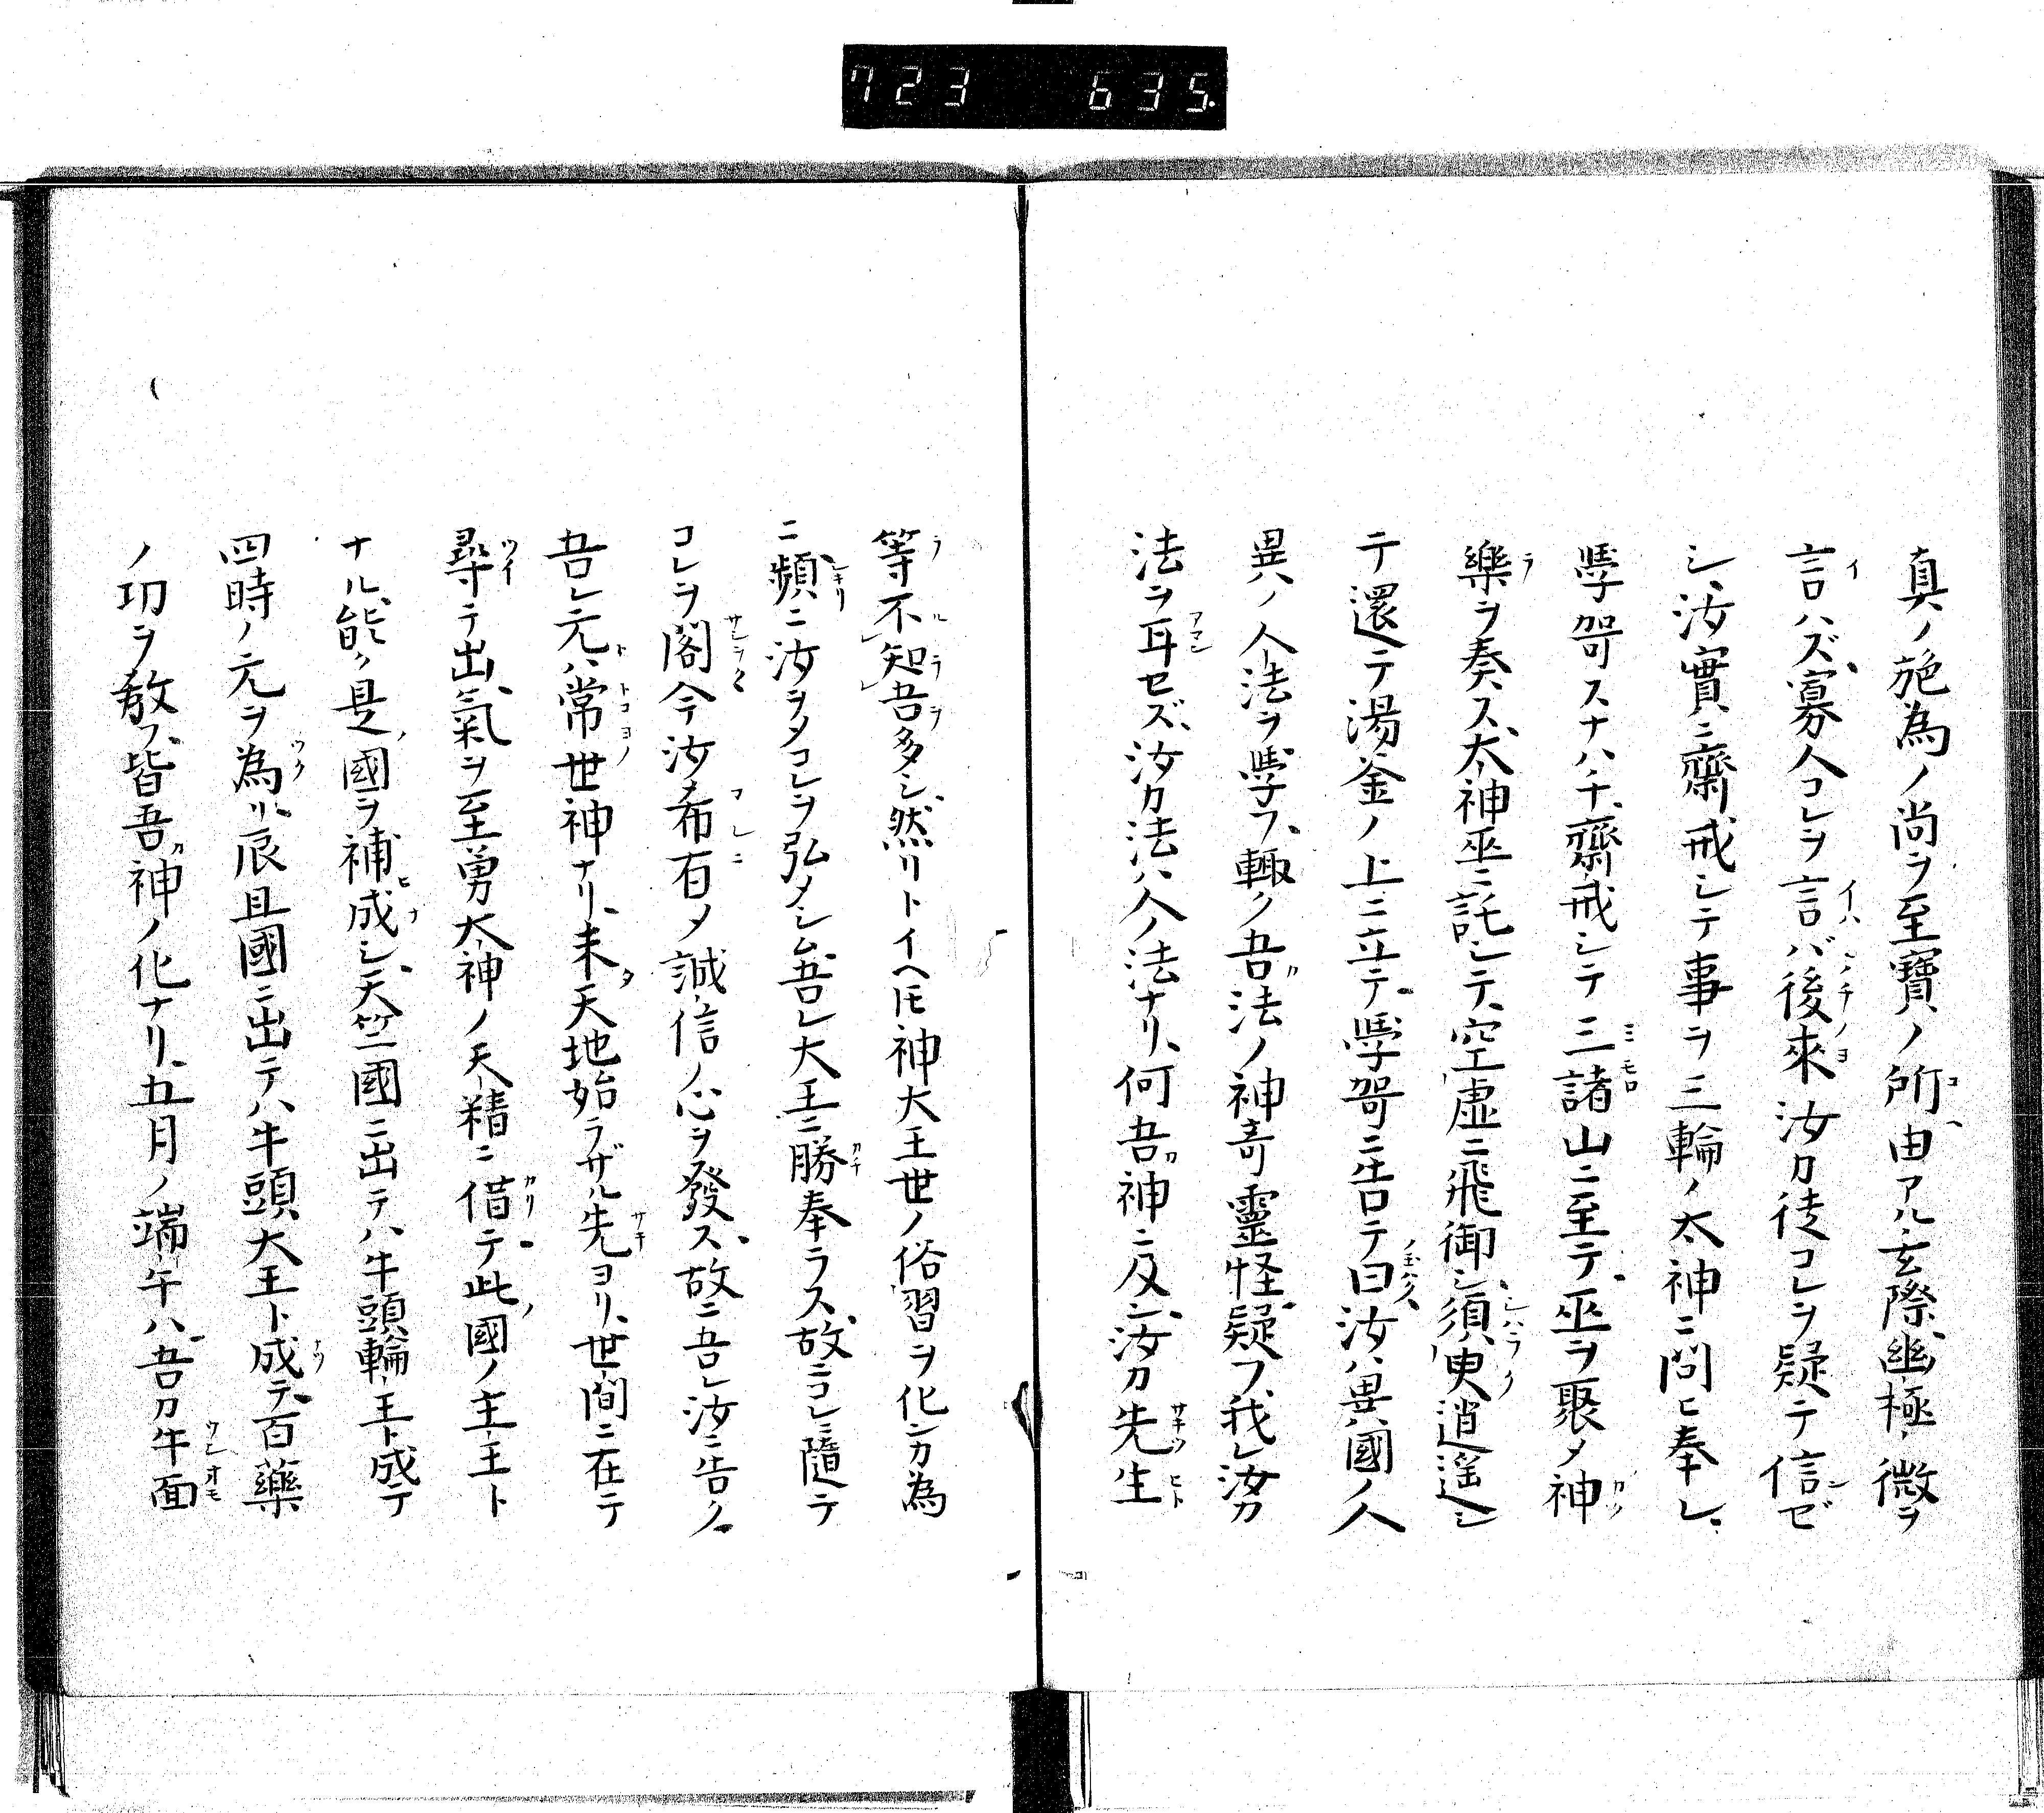 723 635.
真ノ施為ノ尚ヲ至寶ノ所由アル玄際幽極微ヲ
言ハズ寡人コレヲ言バ後來汝カ徒コレヲ疑テ信ゼ
シ、汝實ニ齋戒シテ事ヲ三輪ノ太神ニ問ヒ奉レ、
學哿スナハチ齋戒シテ三諸山ニ至テ巫ヲ聚メ神
樂ヲ奏ス、太神巫ニ託シテ、空虚ニ飛御シ須臾逍遥シ
テ還テ湯釜ノ上ニ立テ學哿ニ告テ曰汝ハ異國ノ人
異ノ人法ヲ學フ、輙ク吾法ノ神奇靈怪疑フ、我レ汝カ
法ヲ耳セズ、汝カ法ハ人ノ法ナリ、何吾神ニ及ン、汝カ先生
等不知吾多シ、然リトイヘ𪜈神大王世ノ俗習ヲ化ンカ為
ニ頻ニ汝ヲメコレヲ弘メシム、吾レ大王ニ勝奉ラス、故ニコレニ隨テ
コレヲ閣今汝メ希有メ誠信ノ心ヲ發ス、故ニ吾レ汝ニ告ク
吾レ元ハ常世神ナリ、未天地始ラザル先ヨリ、世間ニ在テ
尋テ出氣ヲ至勇大神ノ天精ニ借テ此國ノ主王ト
ナル、能ク是國ヲ補成シ、天竺國ニ出テハ牛頭輪王ト成テ
四時ノ元ヲ為リ、辰旦國ニ出テハ牛頭大王ト成テ百藥
ノ功ヲ教フ、皆吾神ノ化ナリ、五月ノ端午ハ吾カ牛面